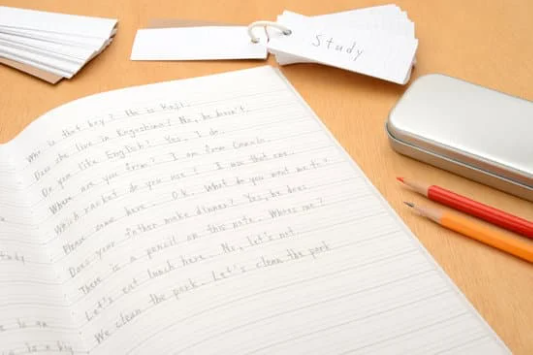 Study
Who is that boy? He is
Does she live in Kagoshima? No, he doesn't.
Do you like English? Yes, I do.
Where are you from? I am form Canada.
Which racket do you use? I use that one
Please come here. O.K. What do you want me to
Does your father make dinner? Yes, he does
There is a pencil on this note. Whose
Let's eat lunch here. No, let's not
We clean the park. Let's clean the park